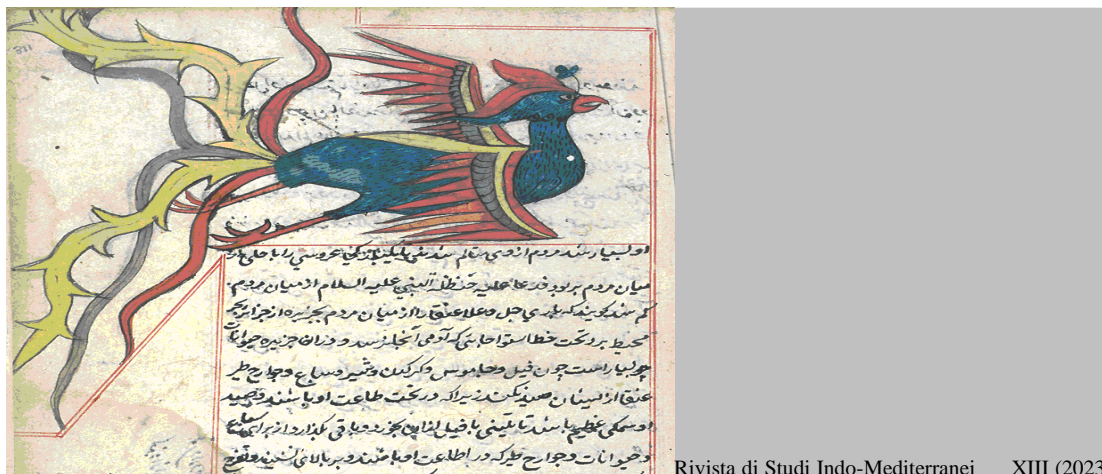 او بسیار شد مردم از وی متالم شدند عروسی را با حلی از
میان مردم بربود فدعا علیه حنظلة النبی علیه السلام از میان مردم
کم شد کویند که باری جل وعلا عنقا را از میان مردم بجزیره از جزایر بحر
محیط برد تحت خط استوا که آدمی آنجا نرسد و در آن جزیره حیوانات
بسیار است چون فیل و جاموس و کرکدن و سباع و جوارح طیر
عنقا از ایشان صید نکند زیرا که در تحت طاعت او باشند و صید
او سمکی عظیم باشد یا تنینی یا فیل از این بخورد و باقی بکذارد از برای سباع
و حیوانات و جوارح طیر که در اطاعت او باشند و بر بالای نشیند و
Rivista di Studi Indo-Mediterranei XIII (2023